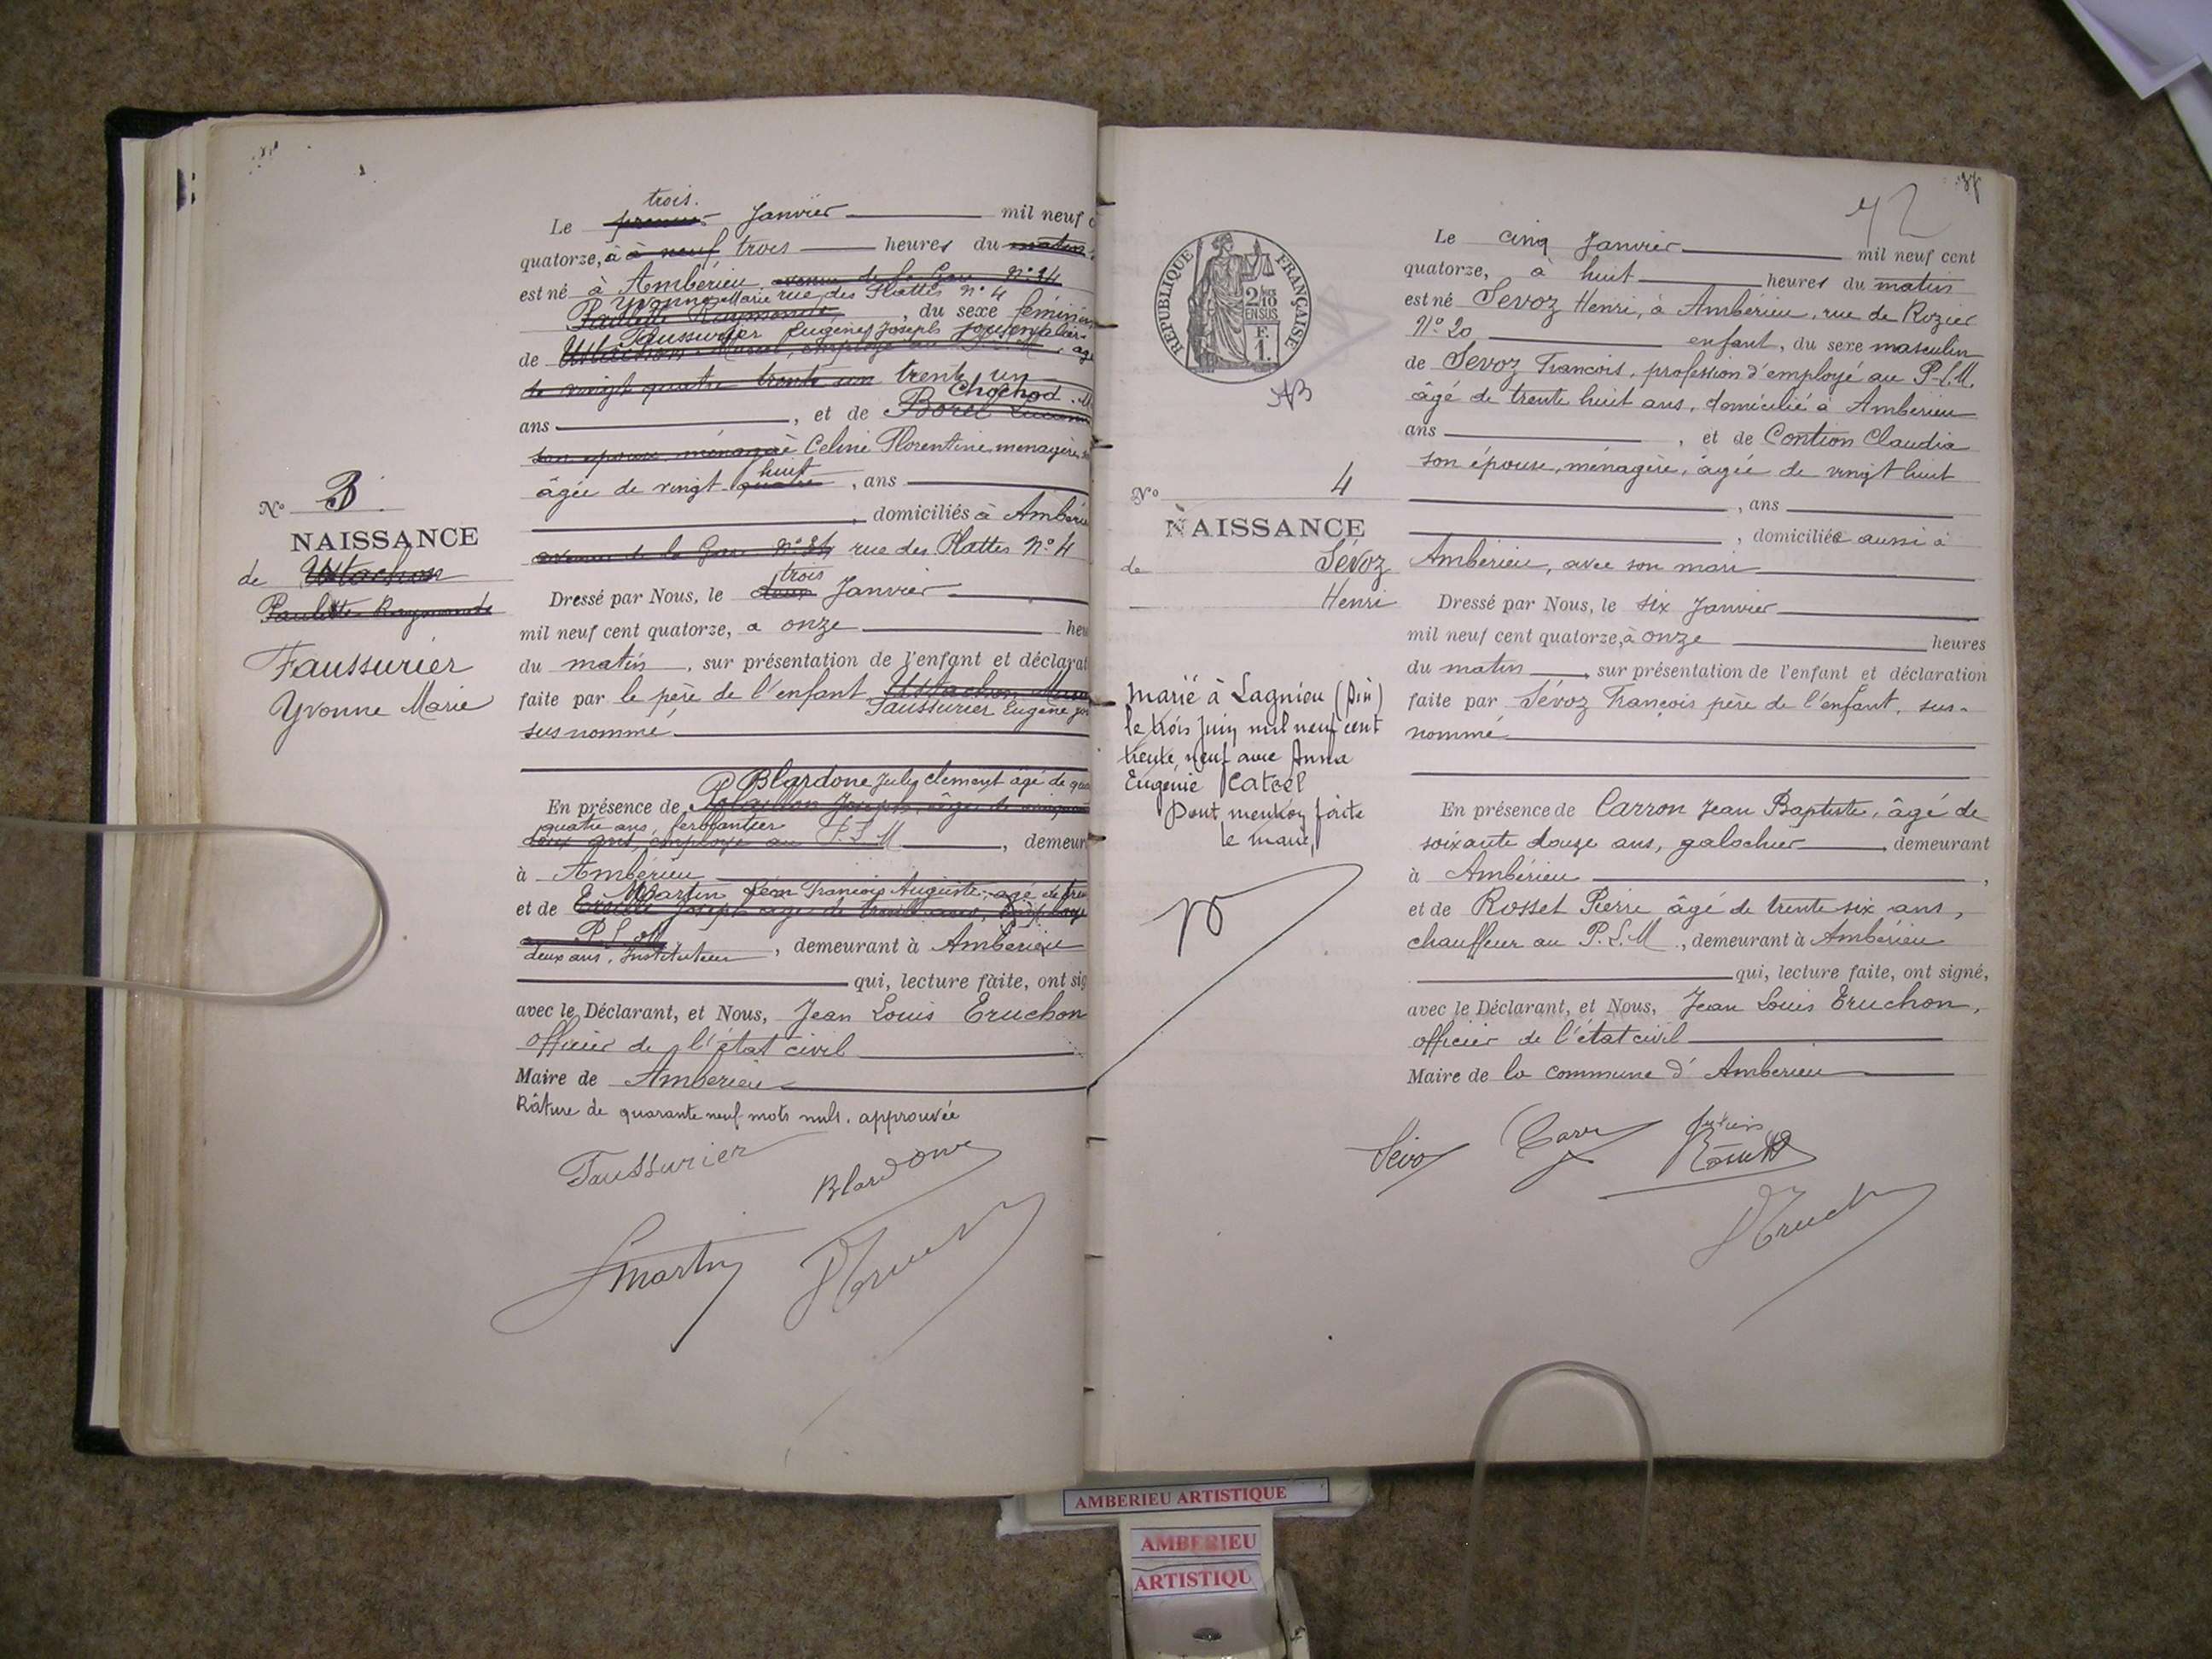 trois.
Le premier Janvier mil neuf c
quatorze, à à neuf trois heures du matin
est né à Ambérieu avenue de la Gare N° 34
Yvonne Marie rue des Plattes N° 4
Paulette Raymonde, du sexe féminin
Faussurier Eugène Joseph journalier
de Ustachon Marcel, employé au P.L.M. agé
de vingt quatre trente un trente un
Chochod
ans, et de Borel
son épouse ménagère Celine Florentine ménagère
huit
âgée de vingt quatre, ans
domiciliés à Ambérieu
avenue de la Gare N° 34 rue des Plattes N° 4
trois
Dressé par Nous, le deux Janvier
mil neuf cent quatorze, a onze heu
du matin, sur présentation de l'enfant et déclarat
faite par le père de l'enfant Ustachon
Faussurier Eugène
susnommé
Blardone July clement âgé de qua
En présence de
quatre ans, ferblantier
deux ans, employé au P.L.M, demeur
à Ambérieu
Martin Léon François Auguste, agé de tren
et de
P.L.M
deux ans, Instituteur, demeurant à Ambérieu
qui, lecture faite, ont sig
avec le Déclarant, et Nous, Jean Louis Eruchon
officier de l'état civil
Maire de Ambérieu
Râture de quarante neuf mots nuls. approuvée
Faussurier
Blardone
Martin
N° 3
NAISSANCE
de Ustachon
Paulette Raymonde
Faussurier
Yvonne Marie
72
RÉPUBLIQUE FRANÇAISE
2/10
EN SUS
F.
1.
AB
N° 4
NAISSANCE
de Sévoz
Henri
Marié à Lagnieu (Ain)
le trois Juin mil neuf cent
trente neuf avec Anna
Eugénie
Dont mention faite
le maire,
Le cinq Janvier mil neuf cent
quatorze, à huit heures du matin
est né Sevoz Henri, à Ambérieu, rue de Rozier
N° 20 enfant, du sexe masculin
de Sevoz Francois, profession d'employé au P.L.M.
âgé de trente huit ans, domicilié à Ambérieu
ans, et de Contion Claudia
son épouse, ménagère, âgée de vingt huit
, ans
, domiciliée aussi à
Ambérieu, avec son mari
Dressé par Nous, le six Janvier
mil neuf cent quatorze, à onze heures
du matin, sur présentation de l'enfant et déclaration
faite par Sévoz François père de l'enfant, sus-
nommé
En présence de Carron Jean Baptiste, âgé de
soixante douze ans, galochier, demeurant
à Ambérieu,
et de Rosset Pierre âgé de trente six ans,
chauffeur au P.L.M, demeurant à Ambérieu
qui, lecture faite, ont signé,
avec le Déclarant, et Nous, Jean Louis Eruchon,
officier de l'état civil
Maire de la commune d'Ambérieu
AMBERIEU ARTISTIQUE
AMBERIEU
ARTISTIQU